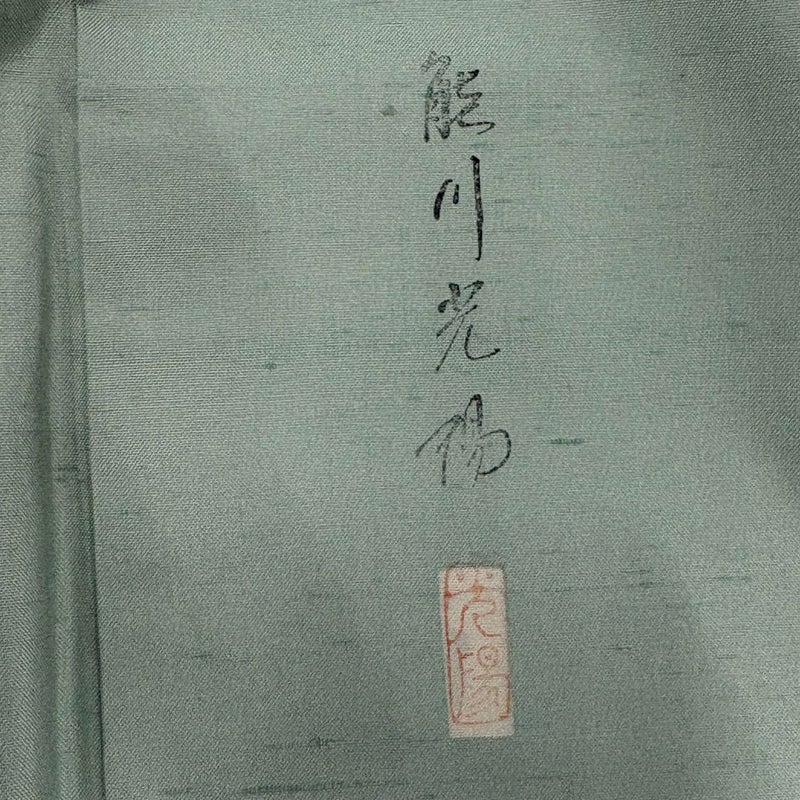 能川光陽
光陽